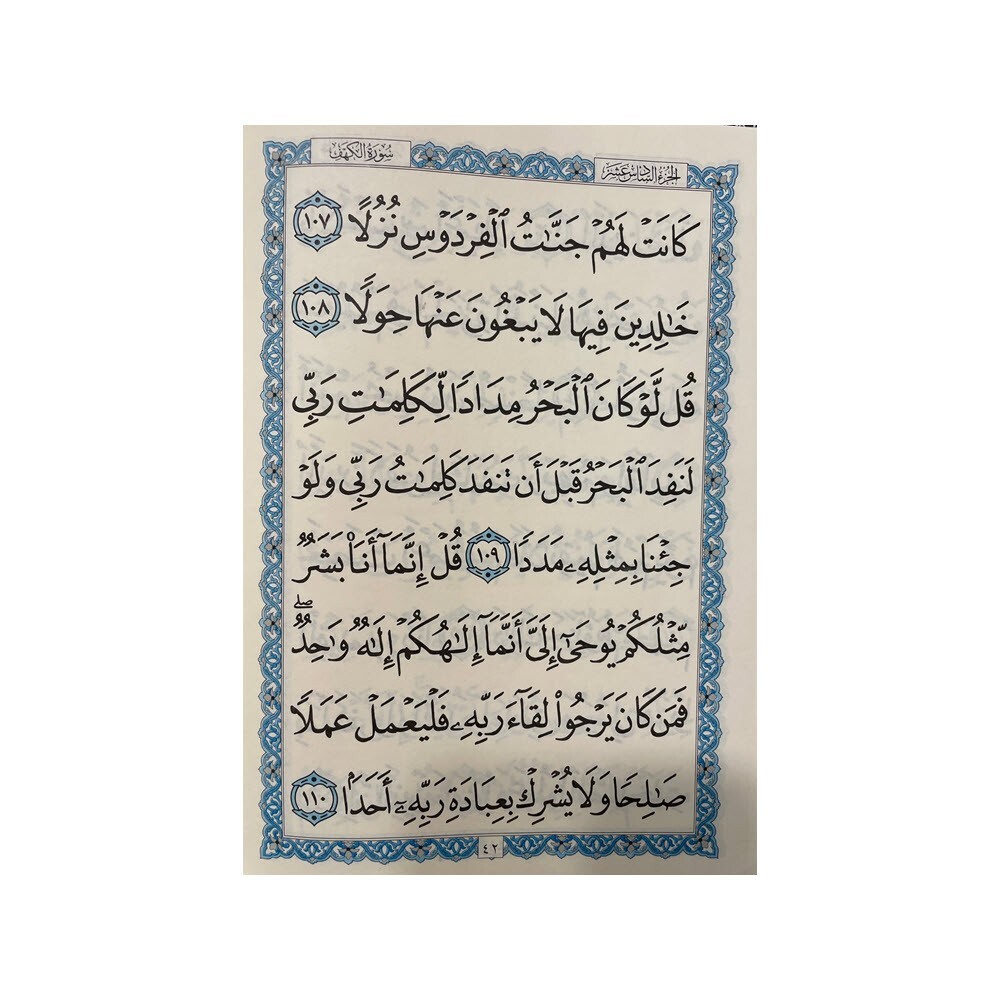 الجزء السادس عشر
سورة الكهف
كَانَتْ لَهُمْ جَنَّـٰتُ ٱلْفِرْدَوْسِ نُزُلًا ١٠٧
خَـٰلِدِينَ فِيهَا لَا يَبْغُونَ عَنْهَا حِوَلًا ١٠٨
قُل لَّوْ كَانَ ٱلْبَحْرُ مِدَادًا لِّكَلِمَـٰتِ رَبِّى
لَنَفِدَ ٱلْبَحْرُ قَبْلَ أَن تَنفَدَ كَلِمَـٰتُ رَبِّى وَلَوْ
جِئْنَا بِمِثْلِهِۦ مَدَدًا ١٠٩ قُلْ إِنَّمَآ أَنَا۠ بَشَرٌ
مِّثْلُكُمْ يُوحَىٰٓ إِلَىَّ أَنَّمَآ إِلَـٰهُكُمْ إِلَـٰهٌ وَٰحِدٌ ۖ
فَمَن كَانَ يَرْجُوا۟ لِقَآءَ رَبِّهِۦ فَلْيَعْمَلْ عَمَلًا
صَـٰلِحًا وَلَا يُشْرِكْ بِعِبَادَةِ رَبِّهِۦٓ أَحَدًۢا ١١٠
٤٢